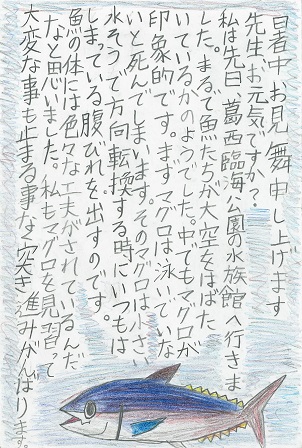 暑中お見舞申し上げます
先生、お元気ですか？
私は先日、葛西臨海公園の水族館へ行きま
した。まるで魚たちが大空をはばた
いているかのようでした。中でもマグロが
印象的です。まずマグロは泳いでいな
いと死んでしまいます。そのマグロは小さい
水そうで方向転換する時にいつもは
しまっている腹びれを出すのです。
魚の体には色々な工夫がされているんだ
なと思いました。私もマグロを見習って
大変な事も止まる事なく突き進みがんばります。